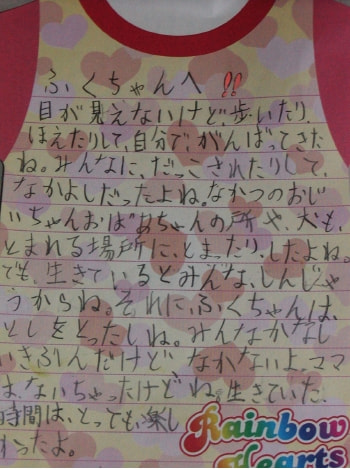 ふくちゃんへ!!
目が見えないけど、歩いたり、
ほえたりして、自分で、がんばってきた
ね。みんなに、だっこされたりして、
なかよしだったよね。なかつのおじ
いちゃんおばあちゃんの所や、犬も、
とまれる場所に、とまったり、したよね。
でも、生きているとみんな、しんじゃ
うからね。それに、ふくちゃんは、
としをとったしね。みんなかなし
いきぶんだけど、なかないよ、ママ
は、ないちゃったけどね。生きていた、
時間は、とっても、楽し
かったよ。
Rainbow
Hearts